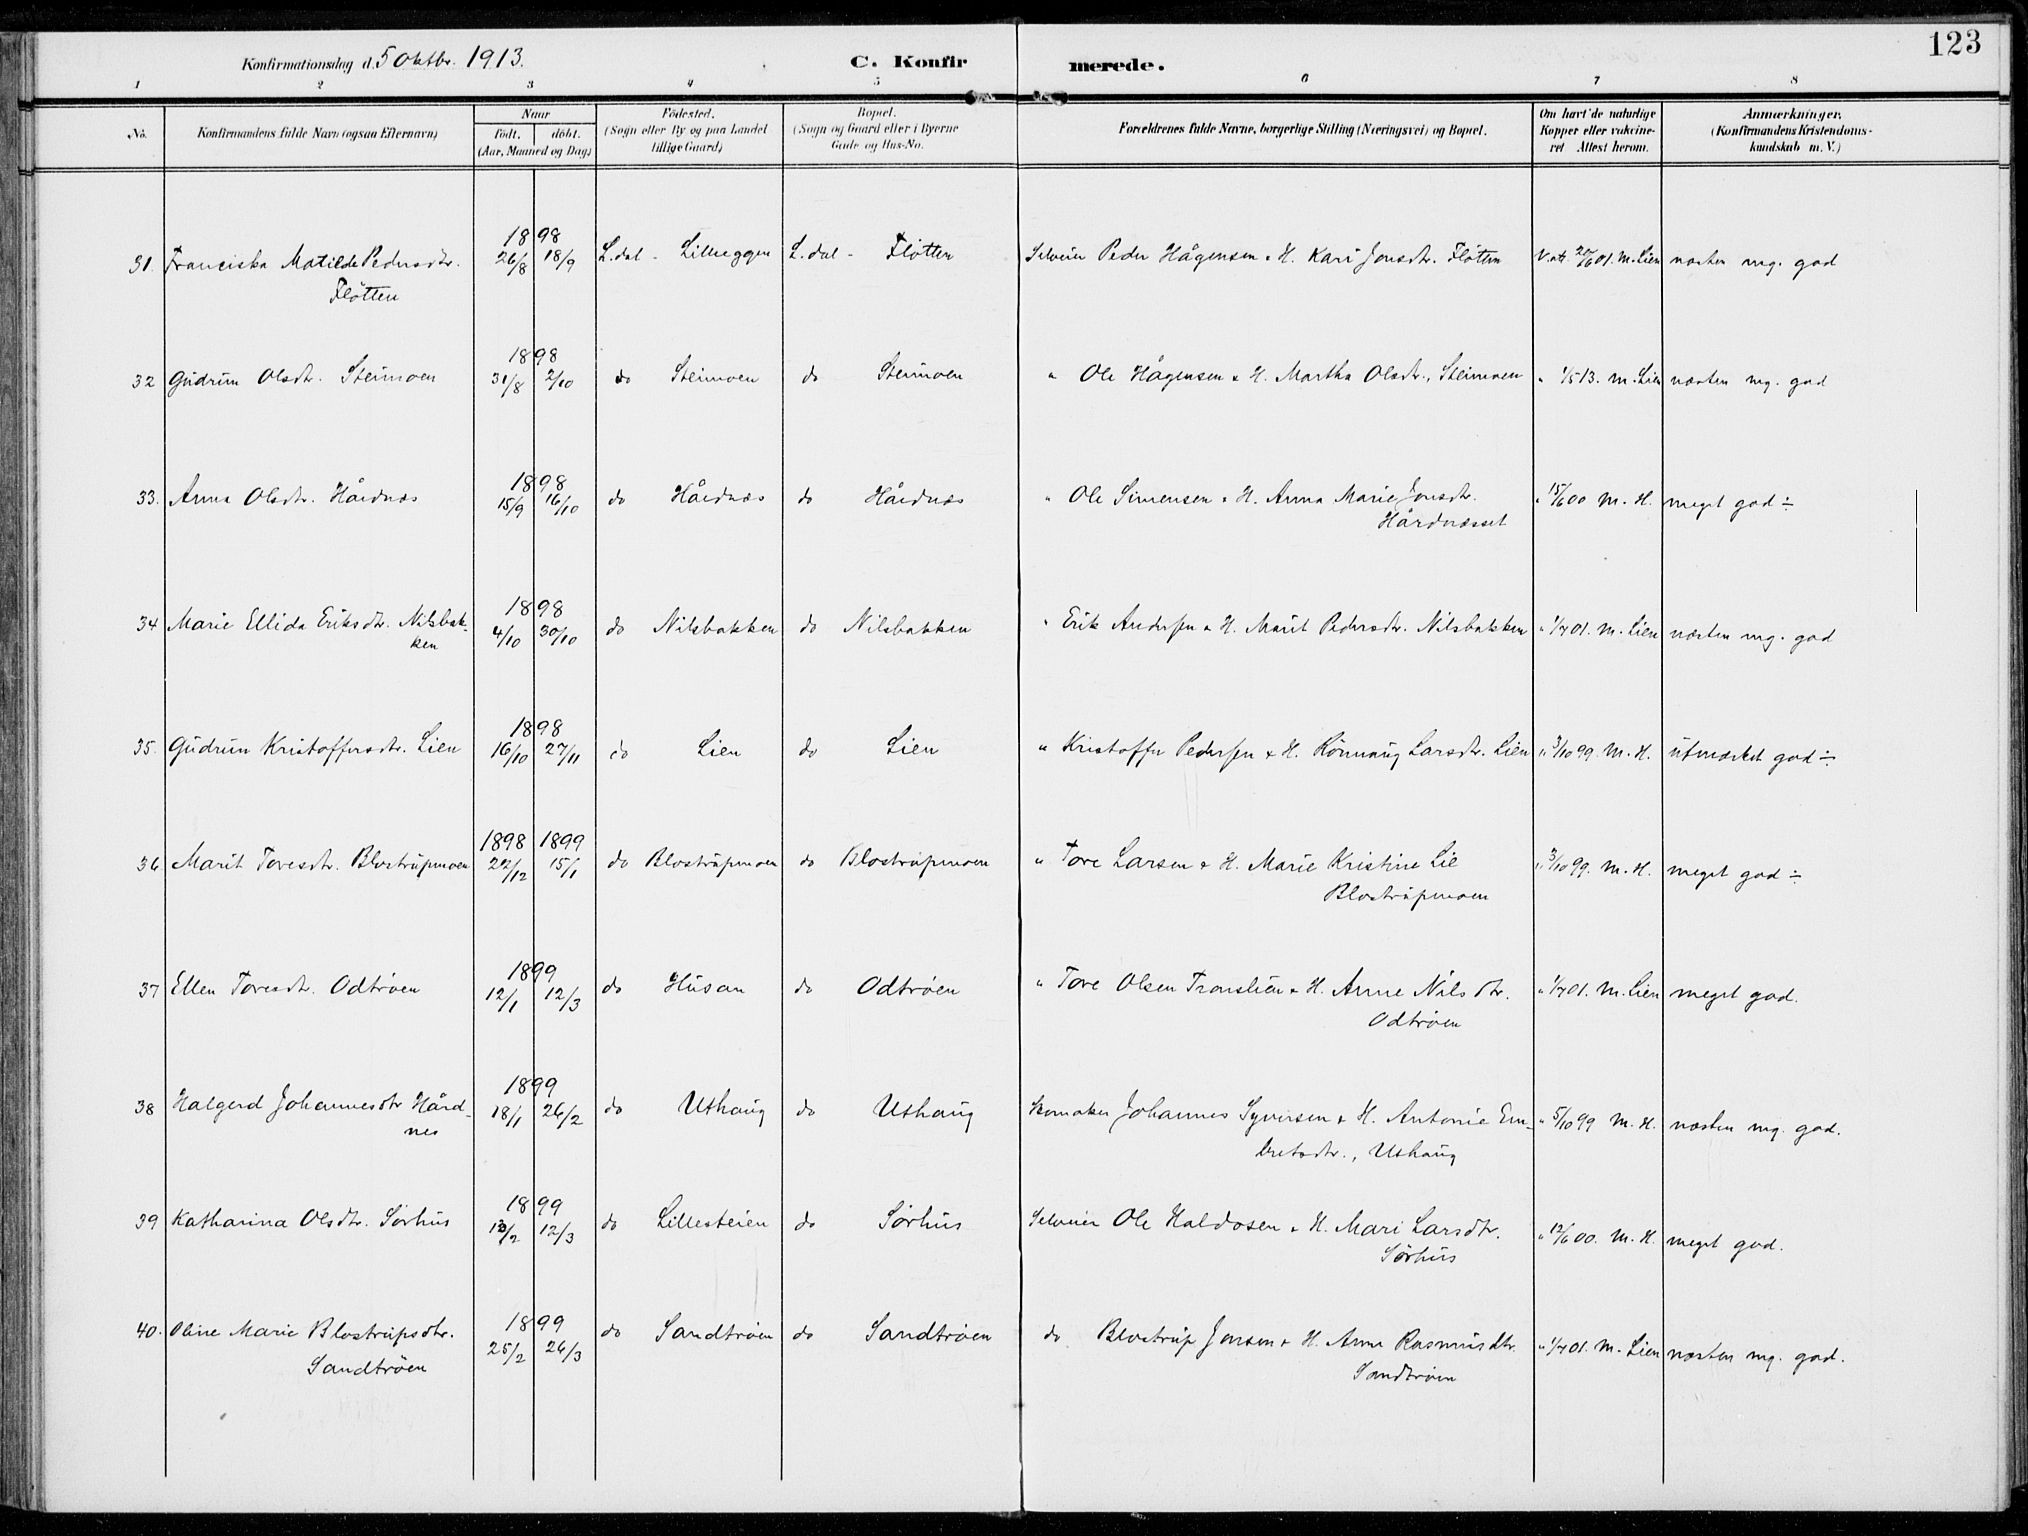 123
Konfirmationsdag d. 5 Oktbr. 1913. C. Konfirmerede.
1 2 3 4 5 6 7 8
No. Konfirmandens fulde Navn (ogsaa Efternavn) Naar Fødested. Bopæl. Forældrenes fulde Navne, borgerlige Stilling (Næringsvei) og Bopæl. Om havt de naturlige Anmærkninger.
født. døbt. (Sogn eller By og paa Landet (Sogn og Gaard eller i Byerne Kopper eller vakcine- (Konfirmandens Kristendoms-
(Aar, Maaned og Dag) tillige Gaard) Gade og Hus-No. ret Attest herom. kundskab m. V.)
1898
31. Franciska Matilde Pedersdtr. 26/8 18/9 L.dal - Lilleeggen L.dal - Fløtten Selveier Peder Hågensen & H. Kari Jonsdtr. Fløtten V. att. 20/6 01. M. Lien næsten mg. god
Fløtten
1898
32 Gudrun Olsdtr. Steimoen 31/8 2/10 do Steimoen do Steimoen " Ole Hågensen & H. Martha Olsdtr., Steimoen " 1/5 13. M. Lien næsten mg. god
1898
33. Anna Olsdtr. Hårdnæs 15/9 16/10 do Hårdnæs do Hårdnæs " Ole Simensen & H. Anna Marie Jonsdtr. " 15/6 00 M. H. meget god ÷
Hårdnæsset
1898
34 Marie Ellida Eriksdtr. Nilsbak- 4/10 30/10 do Nilsbakken do Nilsbakken " Erik Andersen & H. Marit Pedersdtr. Nilsbakken " 1/7 01. M. Lien næsten mg. god
ken
1898
35. Gudrun Kristoffersdtr. Lien 16/10 27/11 do Lien do Lien " Kristoffer Pedersen & H. Rønnaug Larsdtr. Lien " 3/10 99. M. H. utmærket god ÷
1898 1899
36 Marit Toresdtr. Blostrupmoen 22/12 15/1 do Blostrupmoen do Blostrupmoen " Tore Larsen & H. Marie Kristine Lie " 3/10 99. M. H. meget god ÷
Blostrupmoen
1899
37 Ellen Toresdtr. Odtrøen 12/1 12/3 do Husan do Odtrøen " Tore Olsen Tronslien & H. Anne Nilsdtr. " 1/7 01. M. Lien meget god.
Odtrøen
1899
38 Halgerd Johannesdtr Hård- 18/1 26/2 do Uthaug do Uthaug Skomaker Johannes Syversen & H. Antonie Em- " 5/10 99 M. H. næsten mg. god.
nes bretsdtr., Uthaug
1899
39 Katharina Olsdtr. Sørhus 13/2 12/3 do Lillesteien do Sørhus Selveier Ole Haldosen & H. Mari Larsdtr. " 12/6 00. M. H. meget god.
Sørhus
1899
40. Oline Marie Blostrupsdtr. 25/2 26/3 do Sandtrøen do Sandtrøen do Blostrup Jonsen & H. Anne Rasmusdtr. " 1/7 01. M. Lien næsten mg. god.
Sandtrøen Sandtrøen